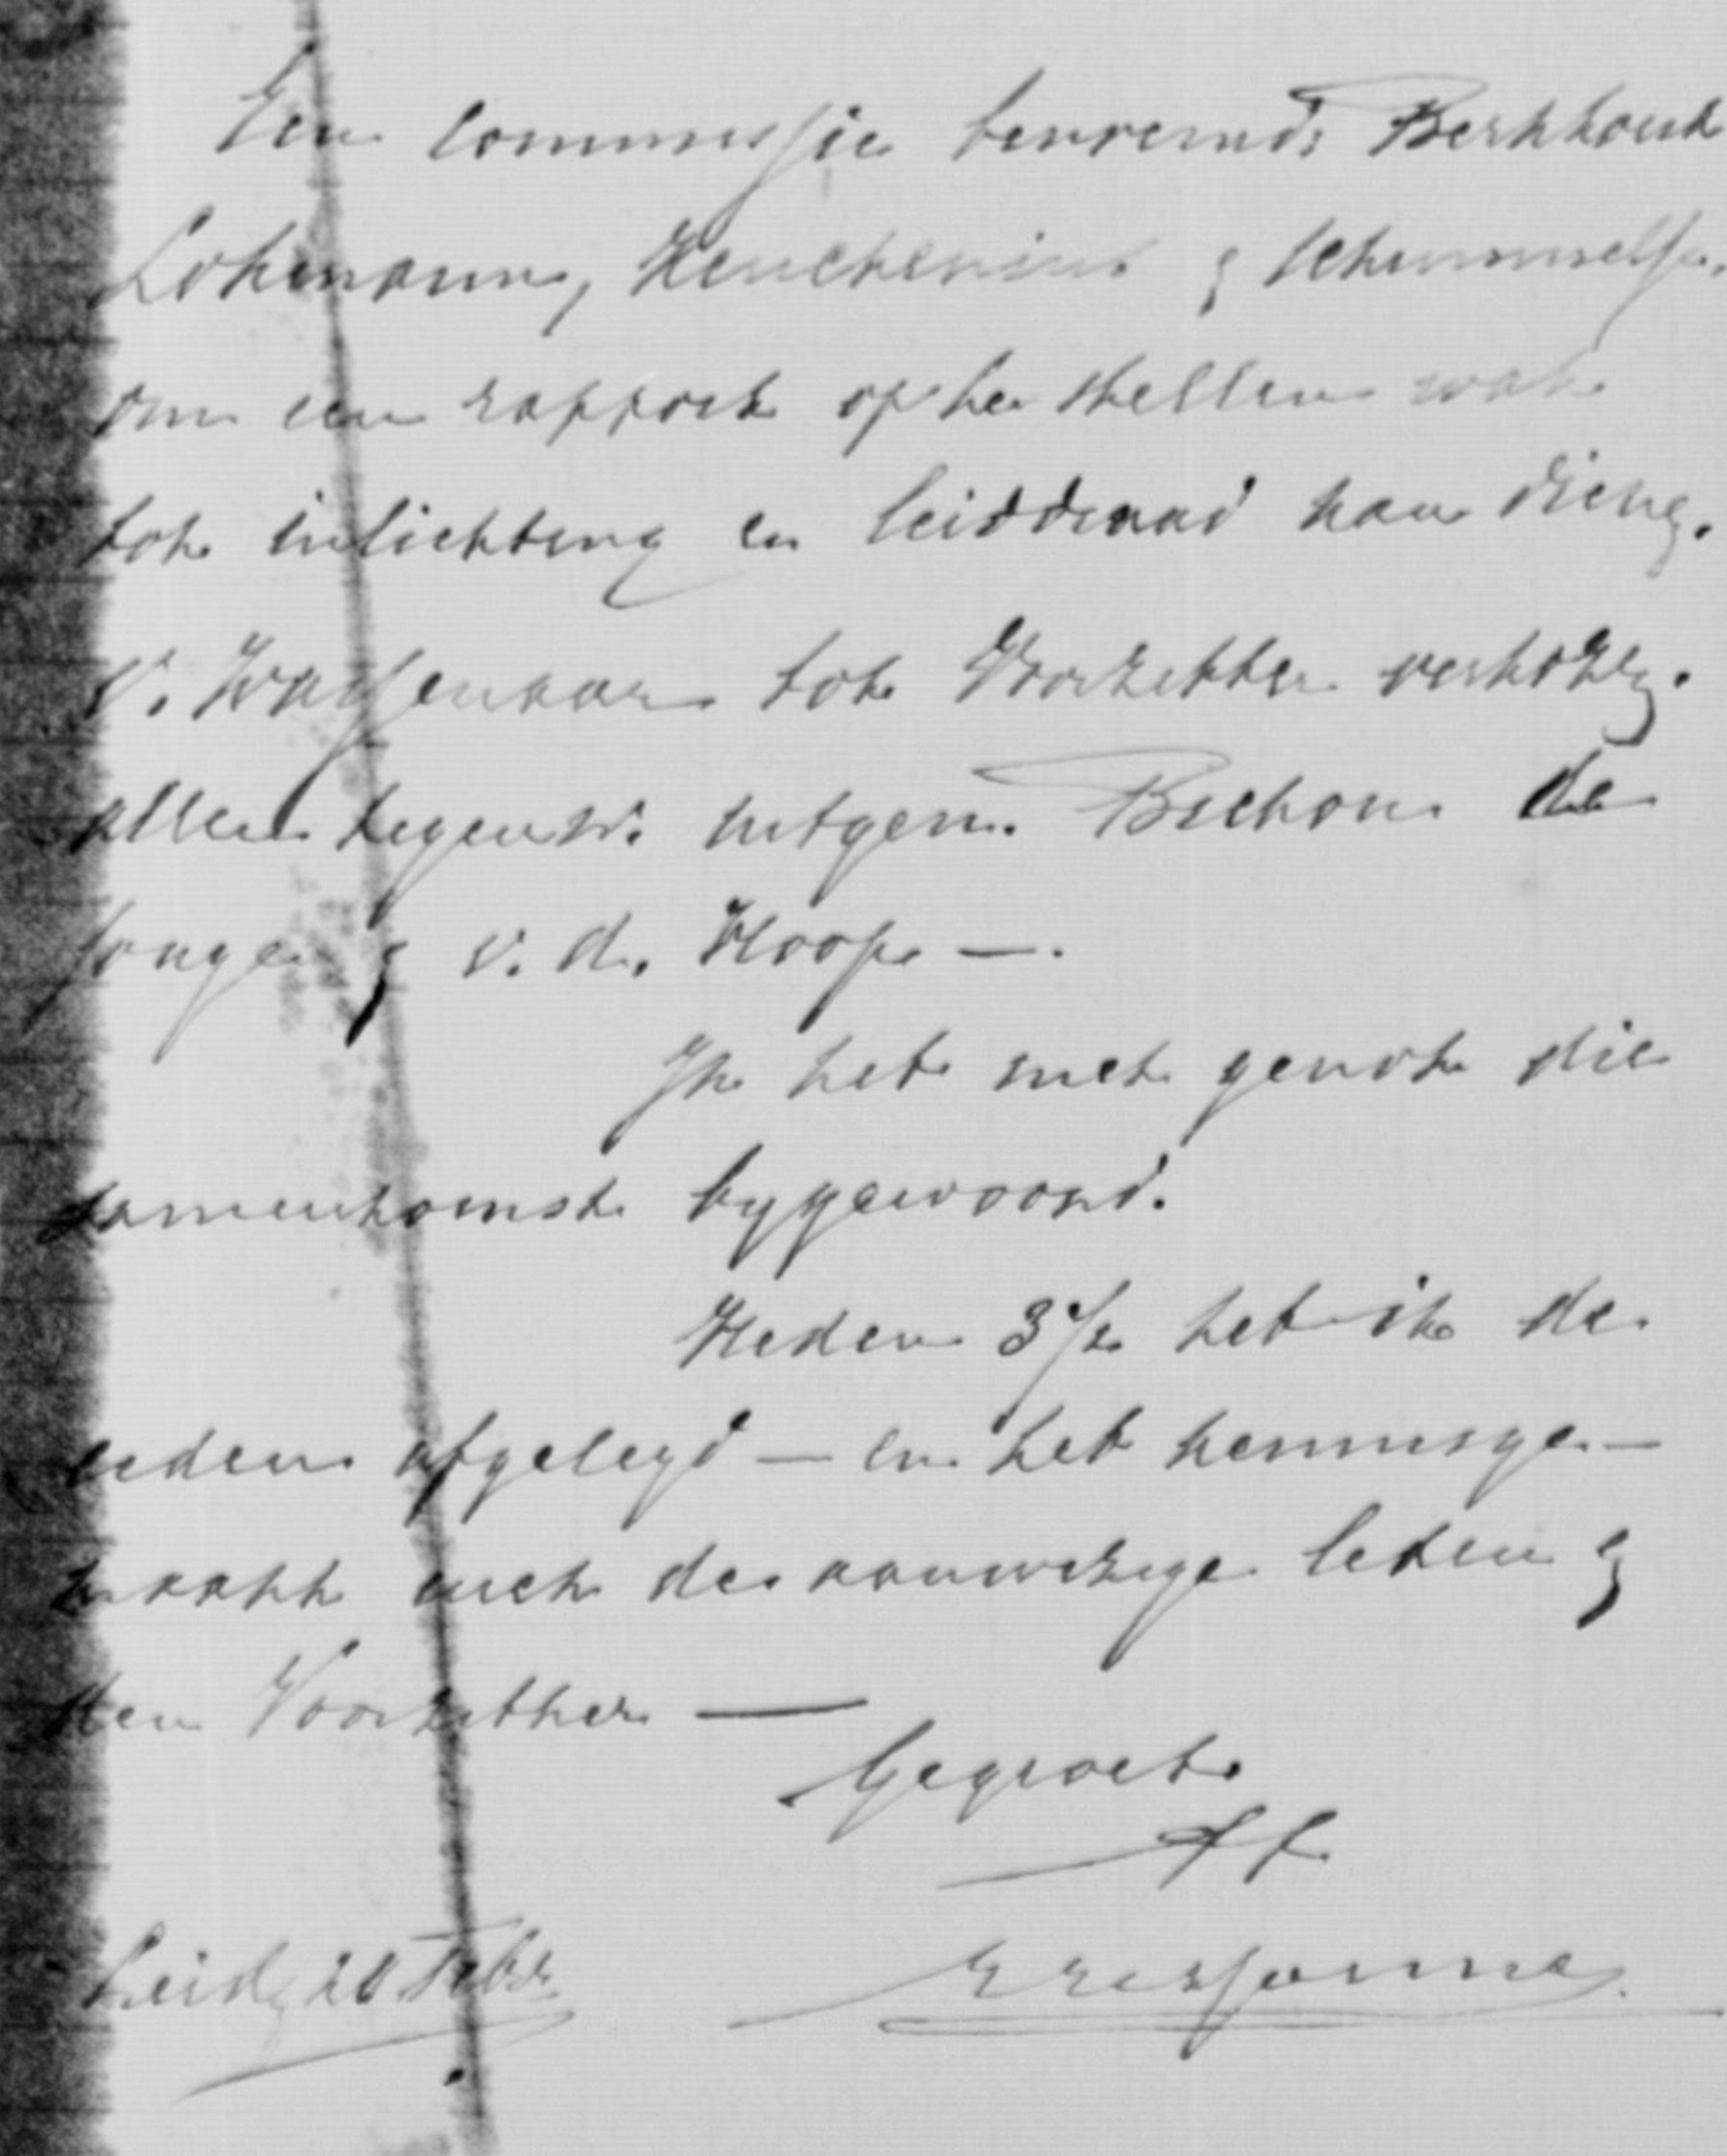 Een commissie benoemd: Berkhout
Lohmann, Keuchenius & Schimmelp.
om een rapport op te stellen wat
tot inlichting en leiddraad kan dien.
V. Wassenaar tot Voorzitter verkozen.
allen tegenw. uitgen. Bichon de
Jonge & v. d. Hoop —.
Ik heb met genot die
samenkomst bygewoond.
Heden 3 heb ik de
eeden afgelegd — en heb kennisge—
maakt met de aanwezige leden &
den Voorzitter —
Gegroet
Leid, 20 Febr